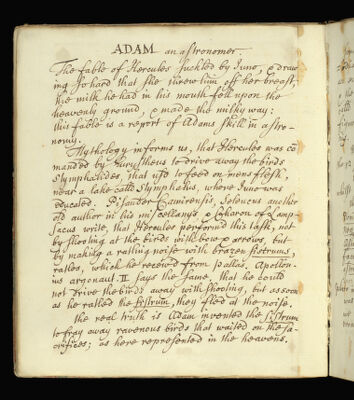 ADAM an astronomer.
The fable of Hercules suckled by Juno, & draw
ing so hard that she threw him off her breast;
the milk he had in his mouth fell upon the
heavenly ground, & made the milky way:
this fable is a report of Adams skill in astro-
nomy.
Mythology informs us, that Hercules was cō
manded by Eurystheus to drive away the birds
Stymphalides, that us'd to feed on mens flesh,
near a lake calld Stymphalus, where Juno was
educated. Pisander Camirensis, Seleucus another
old author in his miscellanys & Charon of Lamp-
sacus write, that Hercules performd this task, not
by shooting at the birds with bow & arrows, but
by making a ratling noise with brazen
ratles, which he receivd from pallas. Apollon-
ius argonaut. II says the same, that he could
not drive the birds away with shooting, but as soon
as he ratled the sistrum, they fled at the noise.
the real truth is Adam invented the sistrum
to fray away ravenous birds that waited on the sa-
crifices; as here represented in the heavens.